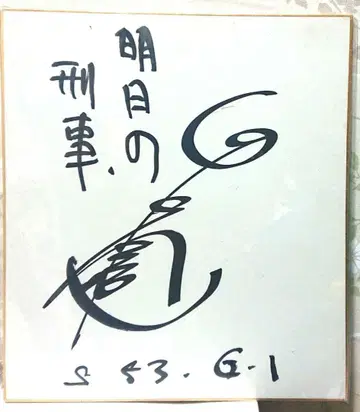 明日の
刑事、
S 53. 6. 1